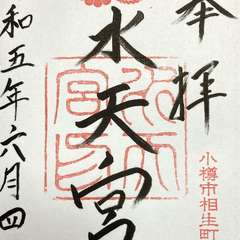 奉拝
小樽市相生町
水天宮
水天宮印
和五年六月四